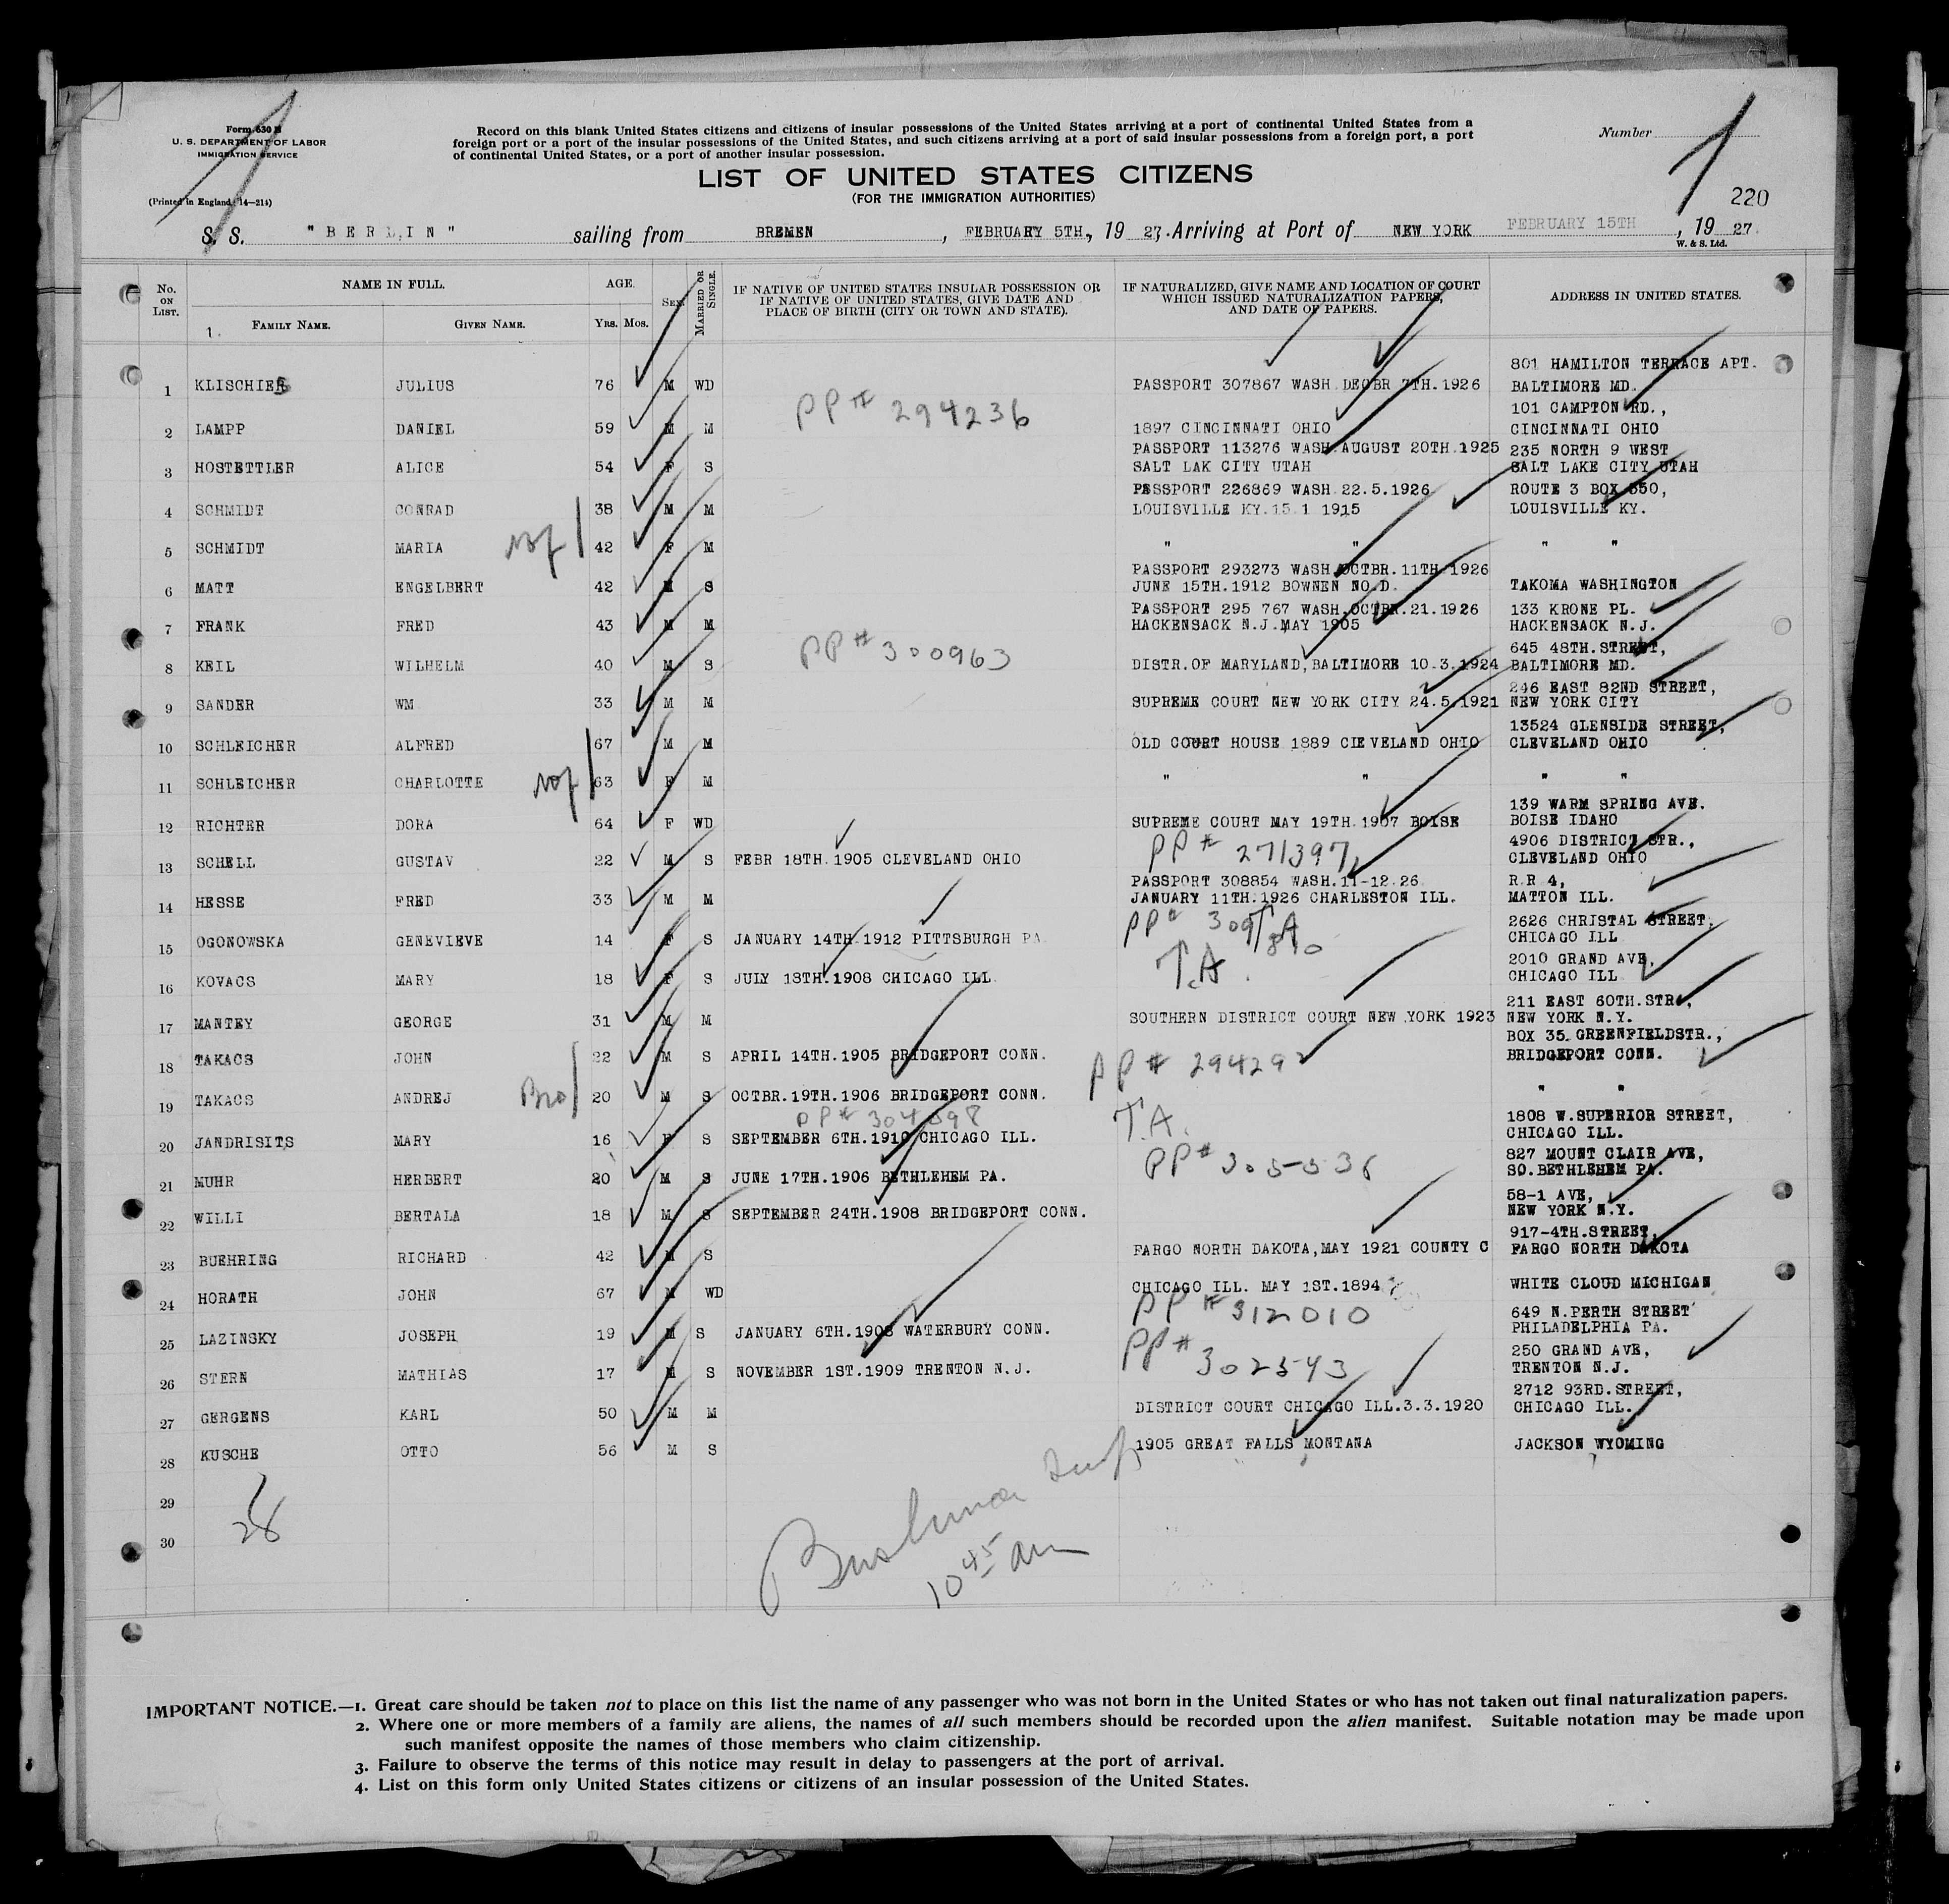 Form 630 B
U. S. DEPARTMENT OF LABOR
IMMIGRATION SERVICE
(Printed in England 14—214)
Record on this blank United States citizens and citizens of insular possessions of the United States arriving at a port of continental United States from a
foreign port or a port of the insular possessions of the United States, and such citizens arriving at a port of said insular possessions from a foreign port, a port
of continental United States, or a port of another insular possession.
Number
LIST OF UNITED STATES CITIZENS
(FOR THE IMMIGRATION AUTHORITIES)
220
S. S. "BERLIN" sailing from BREMEN, FEBRUARY 5TH, 1927. Arriving at Port of NEW YORK FEBRUARY 15TH, 1927.
W. & S. Ltd.
No. ON LIST. NAME IN FULL. AGE. SEX. MARRIED OR SINGLE. IF NATIVE OF UNITED STATES INSULAR POSSESSION OR IF NATIVE OF UNITED STATES, GIVE DATE AND PLACE OF BIRTH (CITY OR TOWN AND STATE). IF NATURALIZED, GIVE NAME AND LOCATION OF COURT WHICH ISSUED NATURALIZATION PAPERS, AND DATE OF PAPERS. ADDRESS IN UNITED STATES.
1. FAMILY NAME. GIVEN NAME. YRS. MOS.
801 HAMILTON TERRACE APT.
1 KLISCHIES JULIUS 76 M WD PASSPORT 307867 WASH DECBR 7TH.1926 BALTIMORE MD.
PP# 294236 101 CAMPTON RD.,
2 LAMPP DANIEL 59 M M 1897 CINCINNATI OHIO CINCINNATI OHIO
PASSPORT 113276 WASH.AUGUST 20TH.1925 235 NORTH 9 WEST
3 HOSTETTLER ALICE 54 F S SALT LAK CITY UTAH SALT LAKE CITY UTAH
PASSPORT 226869 WASH 22.5.1926 ROUTE 3 BOX 550,
4 SCHMIDT CONRAD 38 M M LOUISVILLE KY.15 1 1915 LOUISVILLE KY.
5 SCHMIDT MARIA 42 F M " " " "
PASSPORT 293273 WASH OCTBR.11TH 1926
6 MATT ENGELBERT 42 M S JUNE 15TH.1912 BOWNEN NO.D. TAKOMA WASHINGTON
PASSPORT 295 767 WASH.OCTBR.21.1926 133 KRONE PL.
7 FRANK FRED 43 M M HACKENSACK N.J.MAY 1905 HACKENSACK N.J.
PP# 300963 645 48TH.STREET,
8 KEIL WILHELM 40 M S DISTR.OF MARYLAND,BALTIMORE 10.3.1924 BALTIMORE MD.
246 EAST 82ND STREET,
9 SANDER WM 33 M M SUPREME COURT NEW YORK CITY 24.5.1921 NEW YORK CITY
13524 GLENSIDE STREET,
10 SCHLEICHER ALFRED 67 M M OLD COURT HOUSE 1889 CIEVELAND OHIO CLEVELAND OHIO
11 SCHLEICHER CHARLOTTE 63 F M " " " "
139 WARM SPRING AVE.
12 RICHTER DORA 64 F WD SUPREME COURT MAY 19TH.1907 BOISE BOISE IDAHO
PP# 271397 4906 DISTRICT STR.,
13 SCHELL GUSTAV 22 M S FEBR 18TH.1905 CLEVELAND OHIO CLEVELAND OHIO
PASSPORT 308854 WASH.11-12.26 R.R 4,
14 HESSE FRED 33 M M JANUARY 11TH.1926 CHARLESTON ILL. MATTON ILL.
PP# 309810 T A 2626 CHRISTAL STREET,
15 OGONOWSKA GENEVIEVE 14 F S JANUARY 14TH.1912 PITTSBURGH PA CHICAGO ILL
T.A. 2010 GRAND AVE,
16 KOVACS MARY 18 F S JULY 18TH.1908 CHICAGO ILL. CHICAGO ILL
211 EAST 60TH.STR.,
17 MANTEY GEORGE 31 M M SOUTHERN DISTRICT COURT NEW YORK 1923 NEW YORK N.Y.
BOX 35 GREENFIELDSTR.,
18 TAKACS JOHN 22 M S APRIL 14TH.1905 BRIDGEPORT CONN. PP# 294292 BRIDGEPORT CONN.
19 TAKACS ANDREJ Bro 20 M S OCTBR.19TH.1906 BRIDGEPORT CONN. " "
PP# T.A. 1808 W.SUPERIOR STREET,
20 JANDRISITS MARY 16 F S SEPTEMBER 6TH.1910 CHICAGO ILL. CHICAGO ILL.
PP# 305536 827 MOUNT CLAIR AVE,
21 MUHR HERBERT 20 M S JUNE 17TH.1906 BETHLEHEM PA. SO.BETHLEHEM PA.
58-1 AVE,
22 WILLI BERTALA 18 M S SEPTEMBER 24TH.1908 BRIDGEPORT CONN. NEW YORK N.Y.
917-4TH.STREET,
23 BUEHRING RICHARD 42 M S FARGO NORTH DAKOTA,MAY 1921 COUNTY C FARGO NORTH DAKOTA
24 HORATH JOHN 67 M WD CHICAGO ILL. MAY 1ST.1894 WHITE CLOUD MICHIGAN
PP# 312010 649 N.PERTH STREET
25 LAZINSKY JOSEPH 19 M S JANUARY 6TH.1908 WATERBURY CONN. PHILADELPHIA PA.
PP# 302543 250 GRAND AVE,
26 STERN MATHIAS 17 M S NOVEMBER 1ST.1909 TRENTON N.J. TRENTON N.J.
2712 93RD.STREET,
27 GERGENS KARL 50 M M DISTRICT COURT CHICAGO ILL.3.3.1920 CHICAGO ILL.
28 KUSCHE OTTO 56 M S 1905 GREAT FALLS MONTANA JACKSON WYOMING
29
28
30
10 45 am
IMPORTANT NOTICE.—1. Great care should be taken not to place on this list the name of any passenger who was not born in the United States or who has not taken out final naturalization papers.
2. Where one or more members of a family are aliens, the names of all such members should be recorded upon the alien manifest. Suitable notation may be made upon
such manifest opposite the names of those members who claim citizenship.
3. Failure to observe the terms of this notice may result in delay to passengers at the port of arrival.
4. List on this form only United States citizens or citizens of an insular possession of the United States.